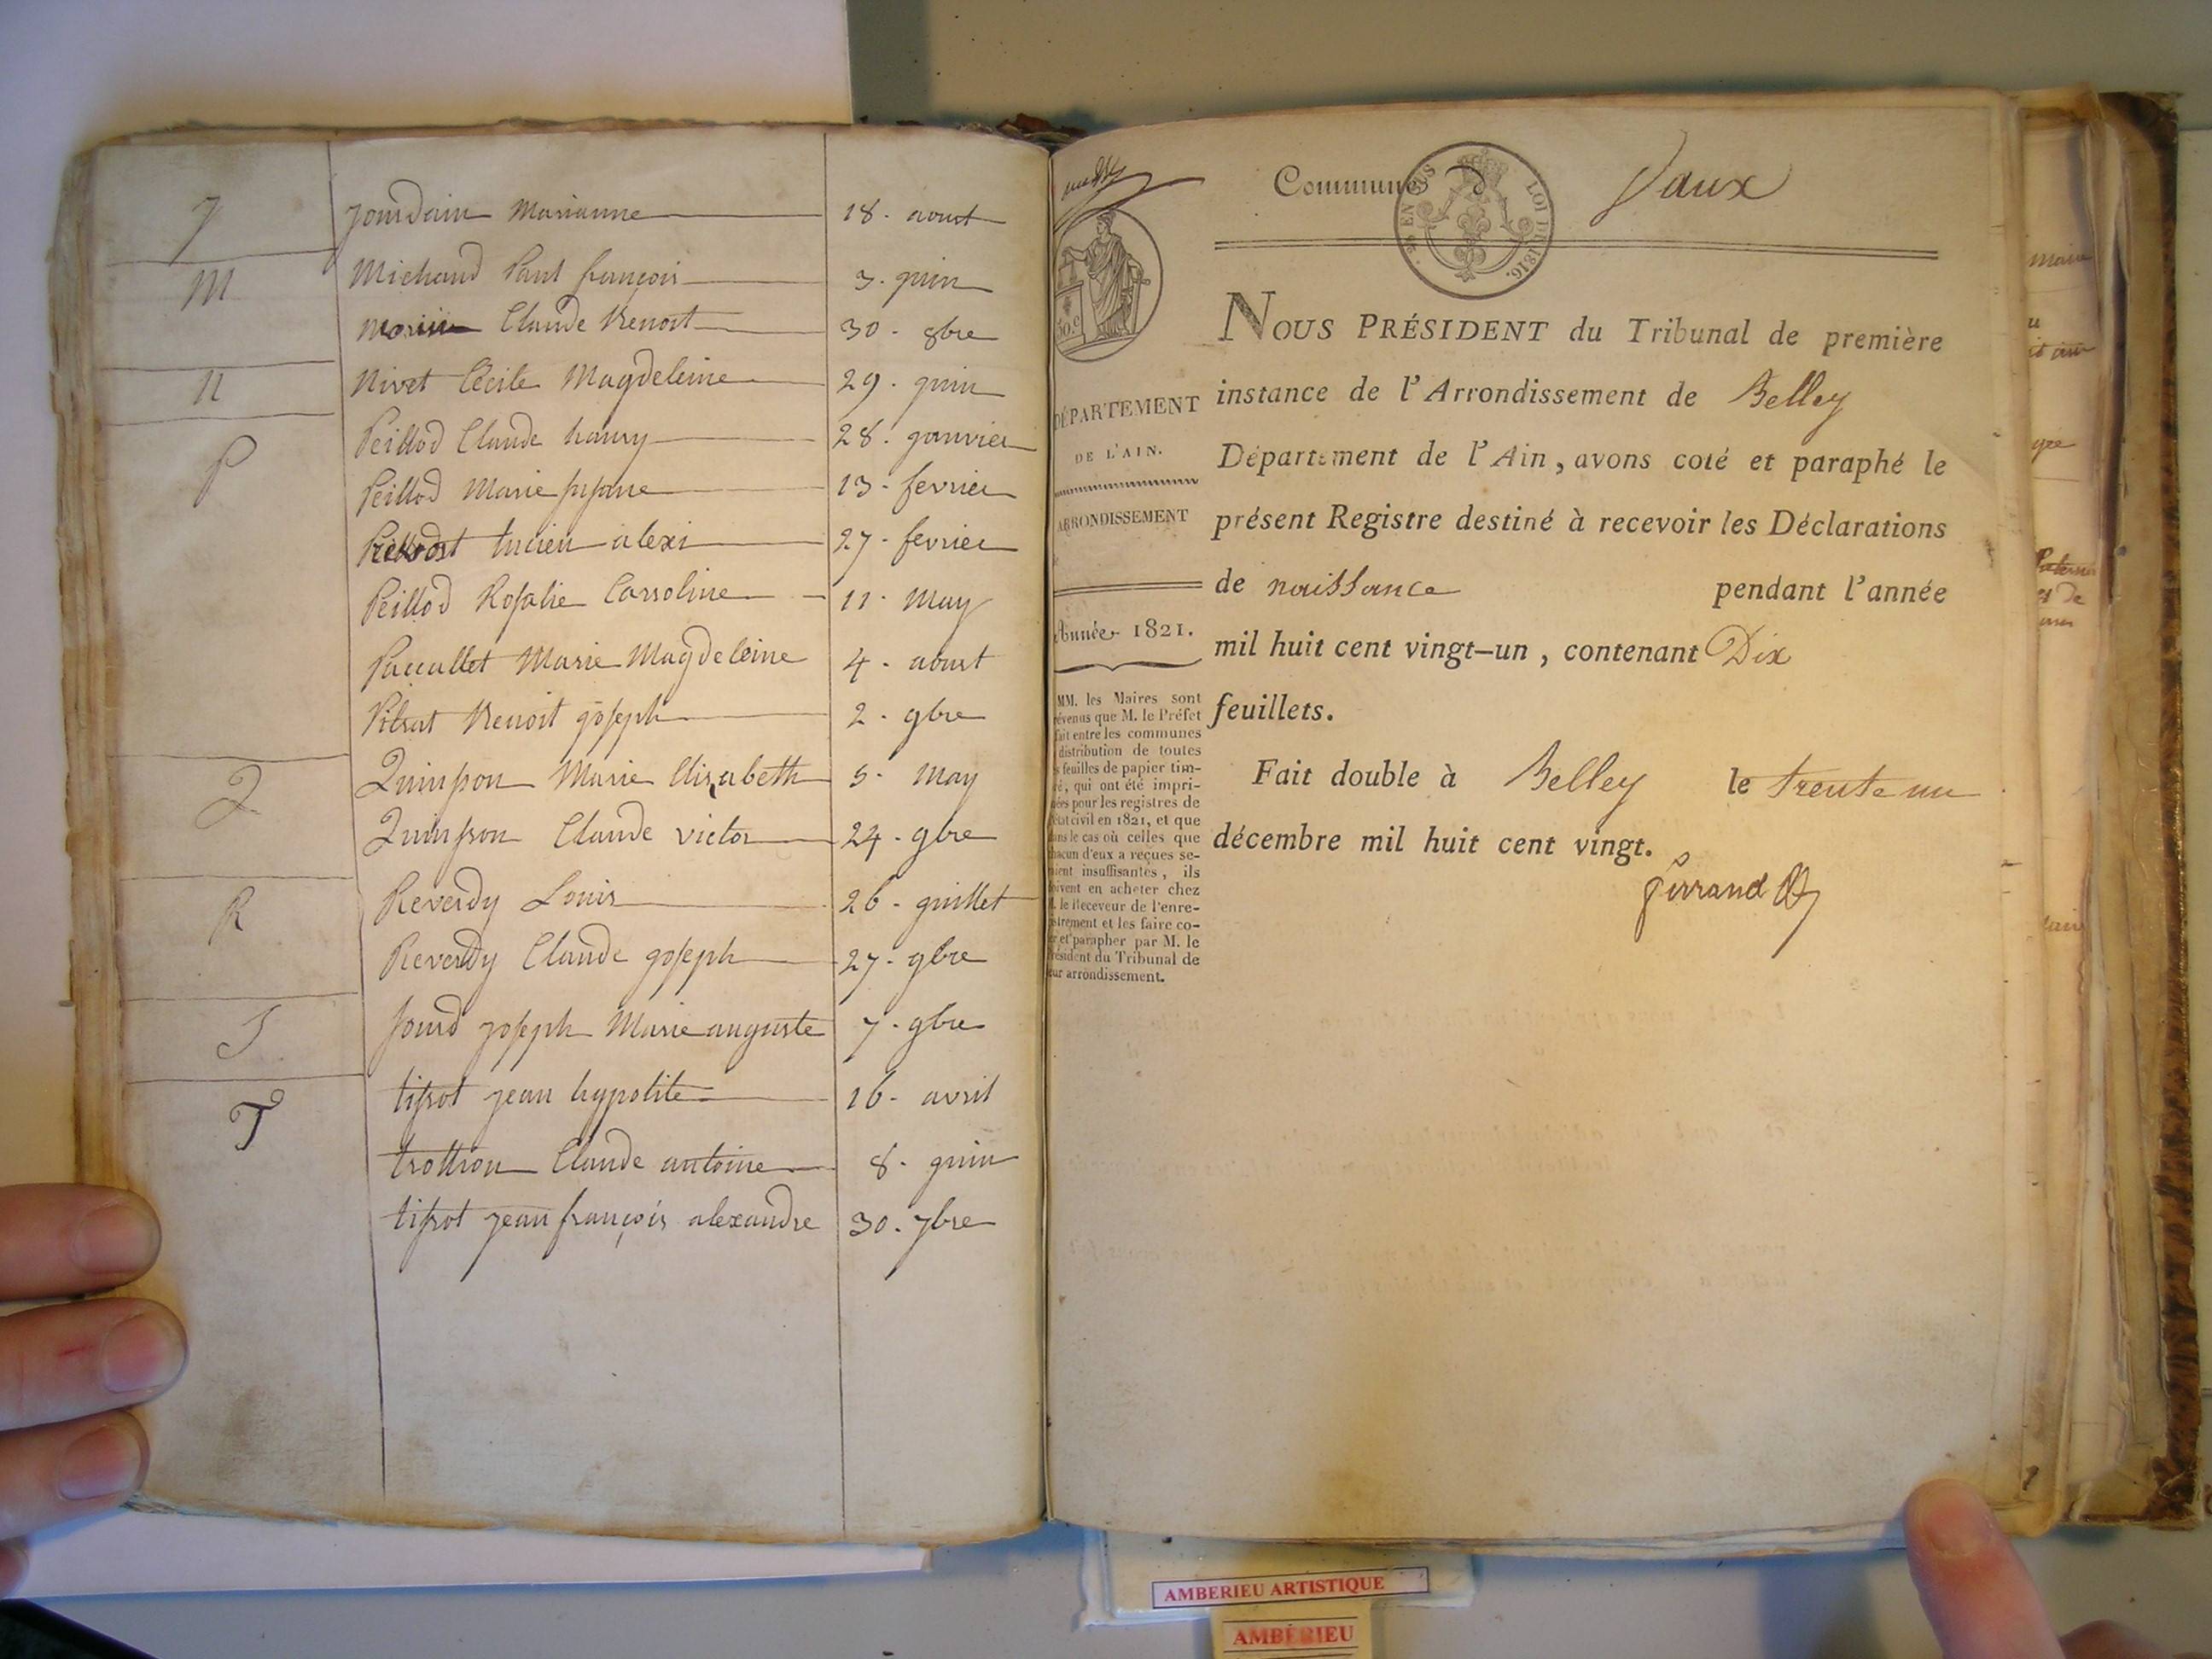 J Jourdain Marianne 18. aoust
M Michaud Paul françois 3. juin
Claude Benoit 30. 8bre
N Nivet Cécile Magdeleine 29. juin
P Peillod Claude hanry 28. janvier
Peillod Marie 13. fevrier
alexi 27. fevrier
Peillod Rosalie Carroline 11. May
Paccallet Marie Magdeleine 4. aoust
Benoit joseph 2. 9bre
Q Quinson Marie Elizabeth 5. May
Quinson Claude victor 24. 9bre
R Reverdy Louis 26. juillet
Reverdy Claude joseph 27. 9bre
S joseph Marie auguste 7. 9bre
T tissot jean hypolite 16. avril
trottion Claude antoine 8. juin
tissot jean françois alexandre 30. 7bre
Commune d Vaux
EN SUS LOI DE 1816.
50.c
DÉPARTEMENT
DE L'AIN.
ARRONDISSEMENT
Année 1821.
MM. les Maires sont
prévenus que M. le Préfet
fait entre les communes
distribution de toutes
les feuilles de papier tim-
bré, qui ont été impri-
mées pour les registres de
l'état civil en 1821, et que
dans le cas où celles que
chacun d'eux a reçues se-
raient insuffisantes, ils
doivent en acheter chez
M. le Receveur de l'enre-
gistrement et les faire co-
ter et parapher par M. le
Président du Tribunal de
leur arrondissement.
NOUS PRÉSIDENT du Tribunal de première
instance de l'Arrondissement de Belley
Département de l'Ain, avons coté et paraphé le
présent Registre destiné à recevoir les Déclarations
de naissance pendant l'année
mil huit cent vingt-un, contenant Dix
feuillets.
Fait double à Belley le trente un
décembre mil huit cent vingt.
AMBERIEU ARTISTIQUE
AMBÉRIEU